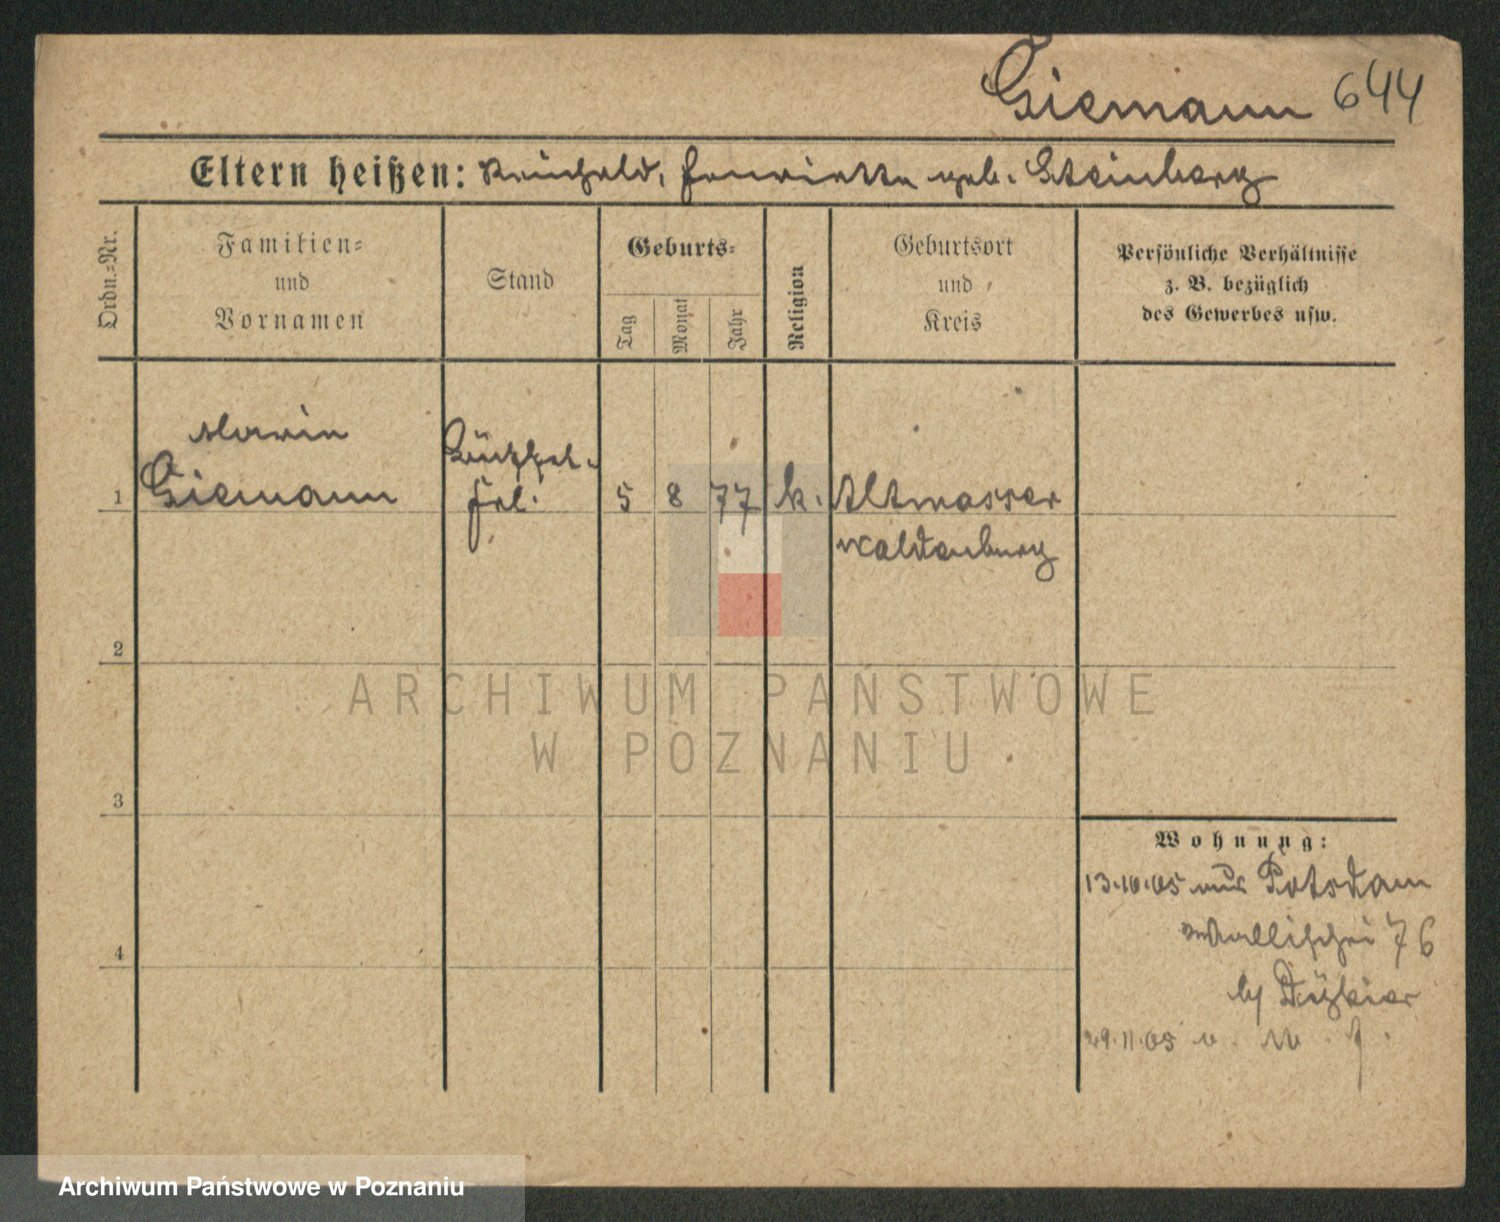 Giemann 644
Eltern heißen: Reinhold, Henriette geb. Steinberg
Ordn.-Nr.
Familien-
und
Vornamen
Stand
Geburts-
Tag
Monat
Jahr
Religion
Geburtsort
und
Kreis
Persönliche Verhältnisse
z. B. bezüglich
des Gewerbes usw.
Marie
1 Giemann
Büffet-
frl.
5 8 77 k. Altwasser
Waldenburg
2
ARCHIWUM PAŃSTWOWE
W POZNANIU
3
Wohnung:
13.10.05 aus Potsdam
Wallischei 76
4
by
29.11.05
Archiwum Państwowe w Poznaniu